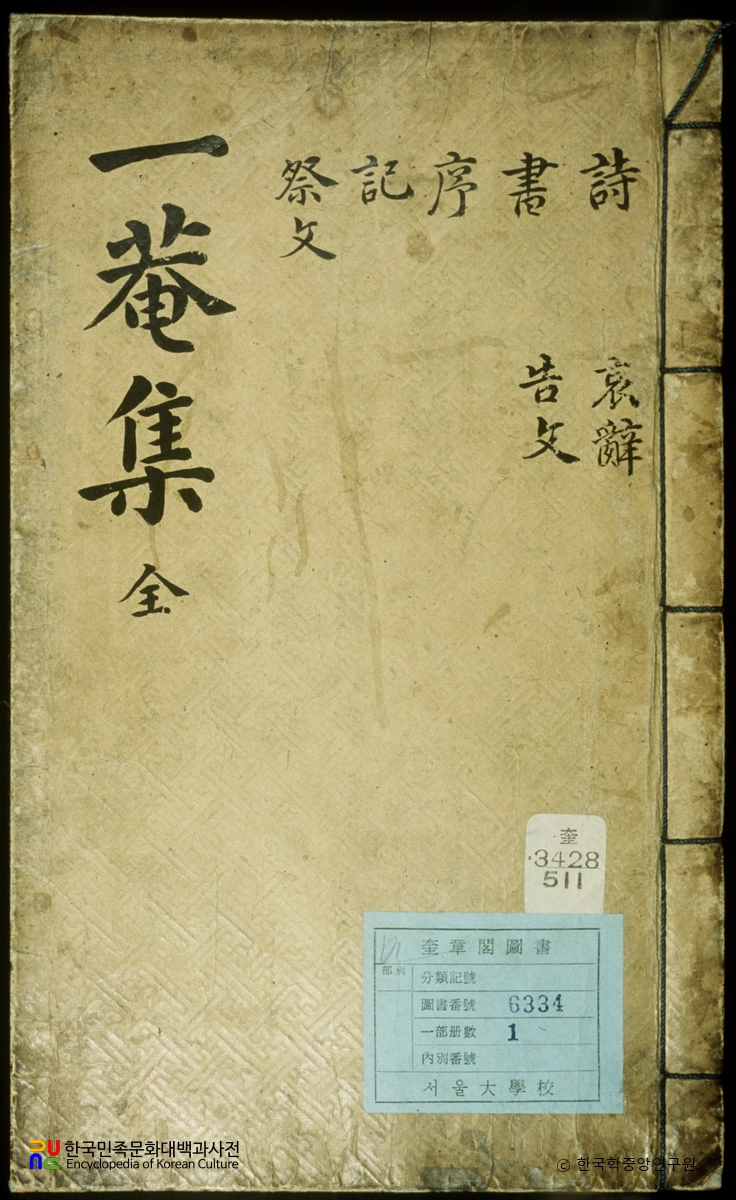 詩
書
序
記
祭文
哀辭
告文
一菴集 全
奎
3428
511
奎章閣圖書
部別
分類記號
圖書番號 6334
一部册數 1
內別番號
서울大學校
한국민족문화대백과사전
Encyclopedia of Korean Culture
© 한국학중앙연구원